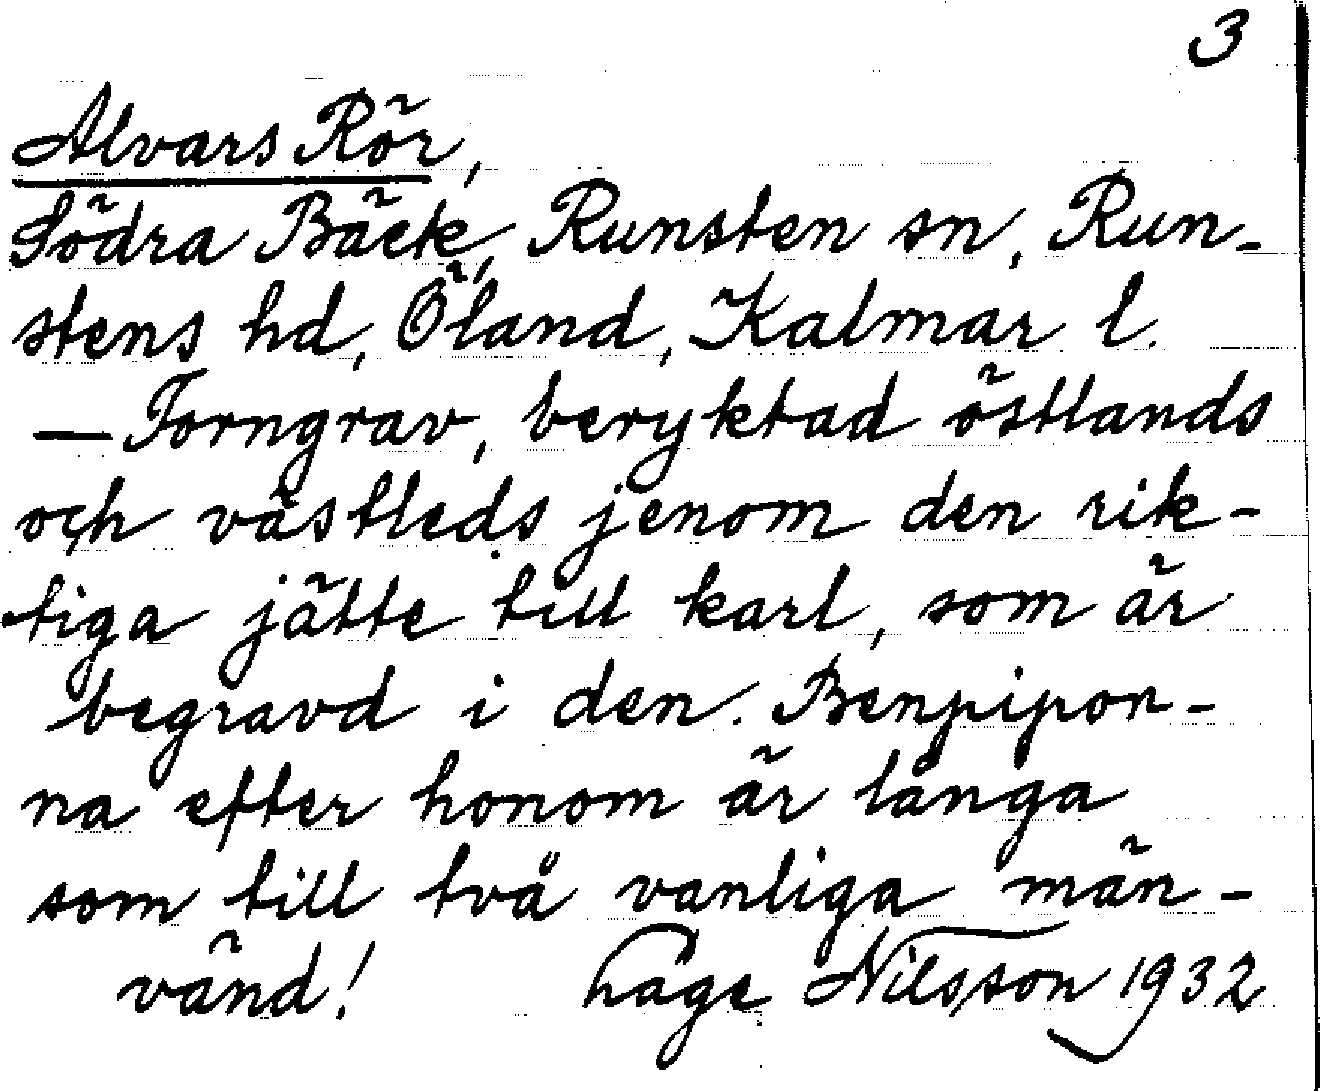 3
Alvars Rör,
Södra Bäck, Runsten sn, Run-
stens hd, Öland, Kalmar l.
— Forngrav, beryktad östlands
och västleds jenom den rik-
tiga jätte till karl, som är
begravd i den. Benpipor-
na efter honom är långa
som till två vanliga män-
vänd! Nilsson 1932